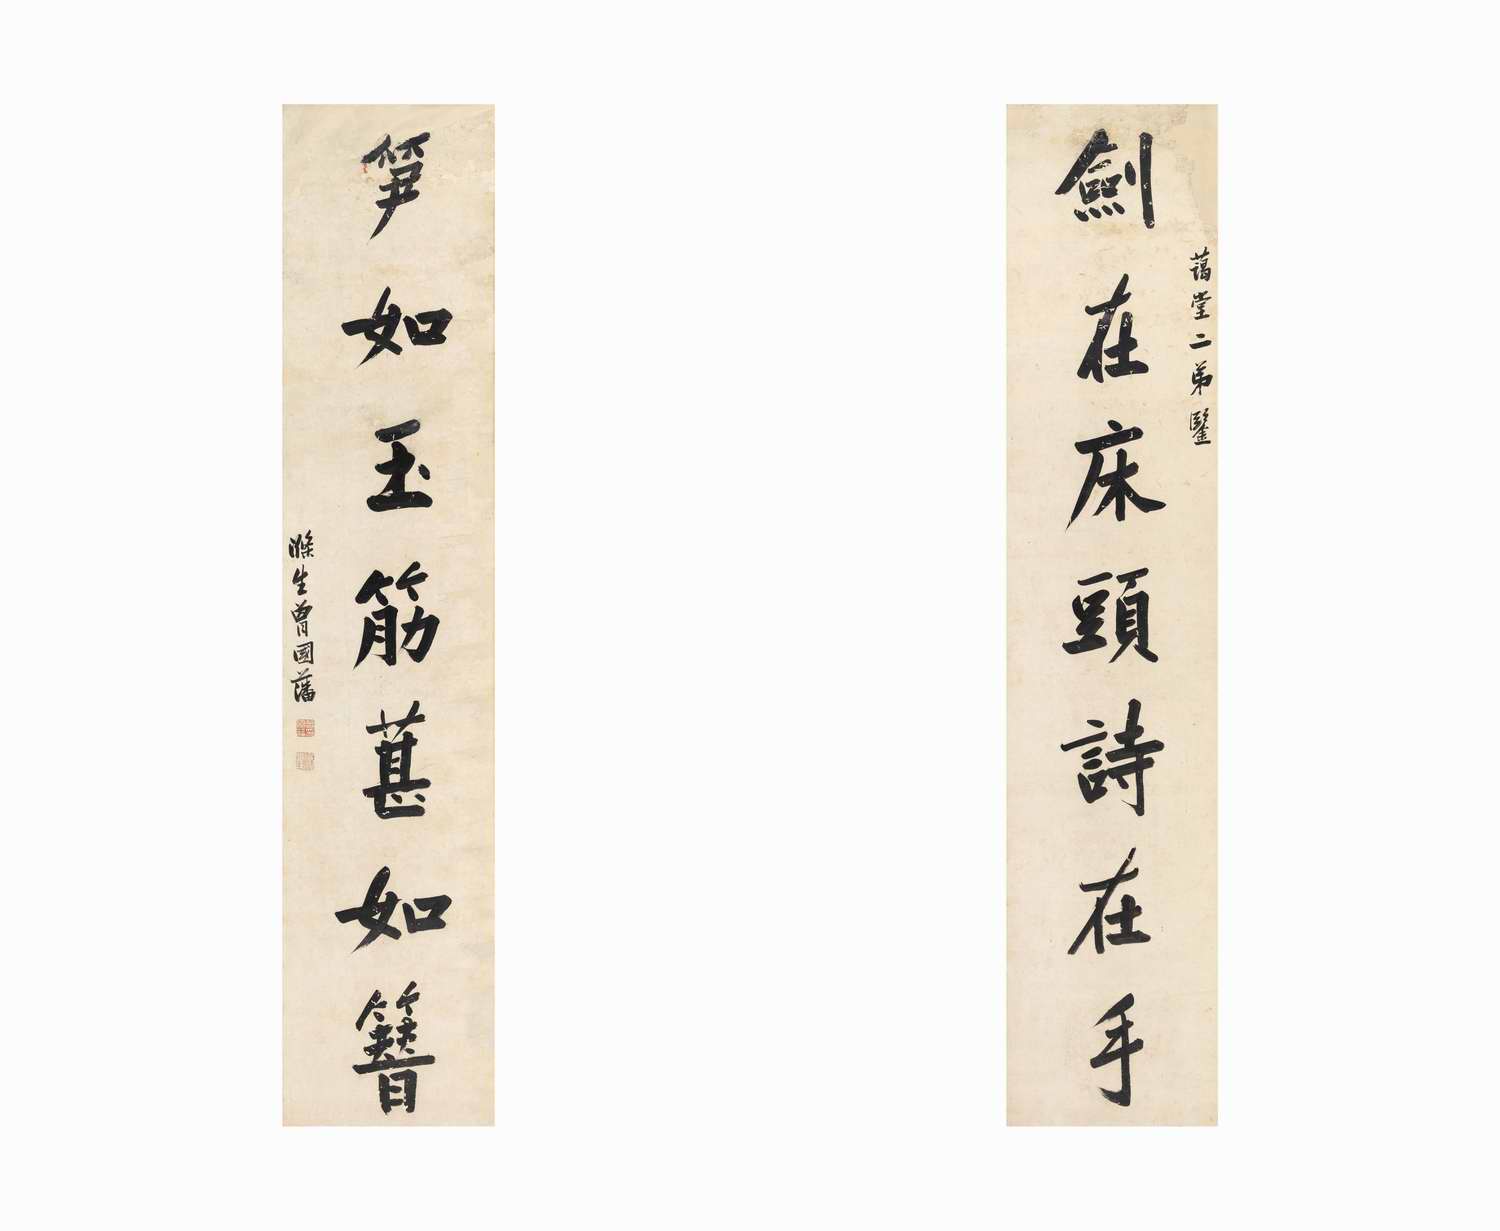 劍在床頭詩在手
藹堂二弟鑒
笋如玉筋葚如簪
滌生曾國藩